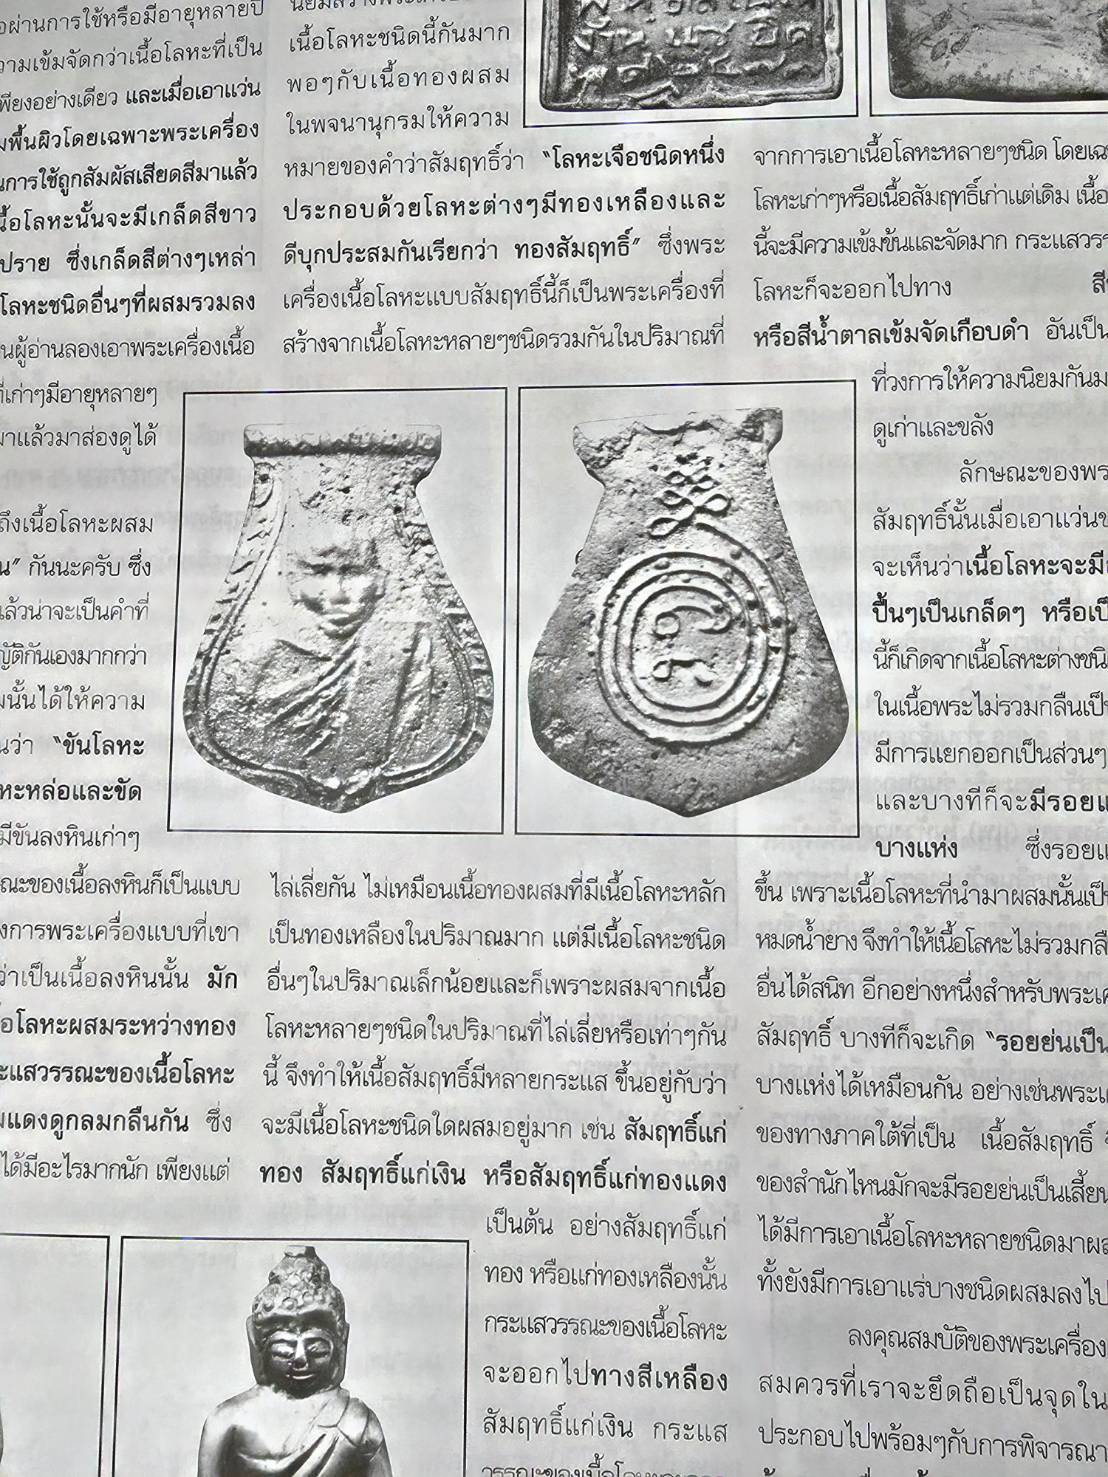 ผ่านการใช้หรือมีอายุหลายปี
ความเข้มจัดกว่าเนื้อโลหะที่เป็น
เพียงอย่างเดียว และเมื่อเอาแว่น
พื้นผิวโดยเฉพาะพระเครื่อง
การใช้ถูกสัมผัสเสียดสีมาแล้ว
เนื้อโลหะนั้นจะมีเกล็ดสีขาว
ปราย ซึ่งเกล็ดสีต่างๆเหล่า
โลหะชนิดอื่นๆที่ผสมรวมลง
ผู้อ่านลองเอาพระเครื่องเนื้อ
ที่เก่าๆมีอายุหลายๆ
มาแล้วมาส่องดูได้
ถึงเนื้อโลหะผสม
น" กันนะครับ ซึ่ง
แล้วน่าจะเป็นคำที่
ญัติกันเองมากกว่า
นั้นได้ให้ความ
ว่า "ขันโลหะ
หะหล่อและขัด
มีขันลงหินเก่าๆ
ณะของเนื้อลงหินก็เป็นแบบ
งการพระเครื่องแบบที่เขา
ว่าเป็นเนื้อลงหินนั้น มัก
โลหะผสมระหว่างทอง
ะแสวรรณะของเนื้อโลหะ
แดงดูกลมกลืนกัน ซึ่ง
ได้มีอะไรมากนัก เพียงแต่
เนื้อโลหะชนิดนี้กันมาก
พอๆกับเนื้อทองผสม
ในพจนานุกรมให้ความ
หมายของคำว่าสัมฤทธิ์ว่า "โลหะเจือชนิดหนึ่ง
ประกอบด้วยโลหะต่างๆมีทองเหลืองและ
ดีบุกประสมกันเรียกว่า ทองสัมฤทธิ์" ซึ่งพระ
เครื่องเนื้อโลหะแบบสัมฤทธิ์นี้ก็เป็นพระเครื่องที่
สร้างจากเนื้อโลหะหลายๆชนิดรวมกันในปริมาณที่
ไล่เลี่ยกัน ไม่เหมือนเนื้อทองผสมที่มีเนื้อโลหะหลัก
เป็นทองเหลืองในปริมาณมาก แต่มีเนื้อโลหะชนิด
อื่นๆในปริมาณเล็กน้อยและก็เพราะผสมจากเนื้อ
โลหะหลายๆชนิดในปริมาณที่ไล่เลี่ยหรือเท่าๆกัน
นี้ จึงทำให้เนื้อสัมฤทธิ์มีหลายกระแส ขึ้นอยู่กับว่า
จะมีเนื้อโลหะชนิดใดผสมอยู่มาก เช่น สัมฤทธิ์แก่
ทอง สัมฤทธิ์แก่เงิน หรือสัมฤทธิ์แก่ทองแดง
เป็นต้น อย่างสัมฤทธิ์แก่
ทอง หรือแก่ทองเหลืองนั้น
กระแสวรรณะของเนื้อโลหะ
จะออกไปทางสีเหลือง
สัมฤทธิ์แก่เงิน กระแส
จากการเอาเนื้อโลหะหลายๆชนิด โดยเฉ
โลหะเก่าๆหรือเนื้อสัมฤทธิ์เก่าแต่เดิม เนื้อ
นี้จะมีความเข้มข้นและจัดมาก กระแสวร
โลหะก็จะออกไปทาง สี
หรือสีน้ำตาลเข้มจัดเกือบดำ อันเป็น
ที่วงการให้ความนิยมกันม
ดูเก่าและขลัง
ลักษณะของพร
สัมฤทธิ์นั้นเมื่อเอาแว่น
จะเห็นว่าเนื้อโลหะจะมี
ปื้นๆเป็นเกล็ดๆ หรือเป็
นี้ก็เกิดจากเนื้อโลหะต่างชนิ
ในเนื้อพระไม่รวมกลืนเป็
มีการแยกออกเป็นส่วนๆ
และบางทีก็จะมีรอยแ
บางแห่ง ซึ่งรอยแ
ขึ้น เพราะเนื้อโลหะที่นำมาผสมนั้นเป็
หมดน้ำยาง จึงทำให้เนื้อโลหะไม่รวมกลื
อื่นได้สนิท อีกอย่างหนึ่งสำหรับพระเค
สัมฤทธิ์ บางทีก็จะเกิด "รอยย่นเป็น
บางแห่งได้เหมือนกัน อย่างเช่นพระเ
ของทางภาคใต้ที่เป็น เนื้อสัมฤทธิ์
ของสำนักไหนมักจะมีรอยย่นเป็นเสี้ยน
ได้มีการเอาเนื้อโลหะหลายชนิดมาผส
ทั้งยังมีการเอาแร่บางชนิดผสมลงไป
ลงคุณสมบัติของพระเครื่อง
สมควรที่เราจะยึดถือเป็นจุดใน
ประกอบไปพร้อมๆกับการพิจารณา